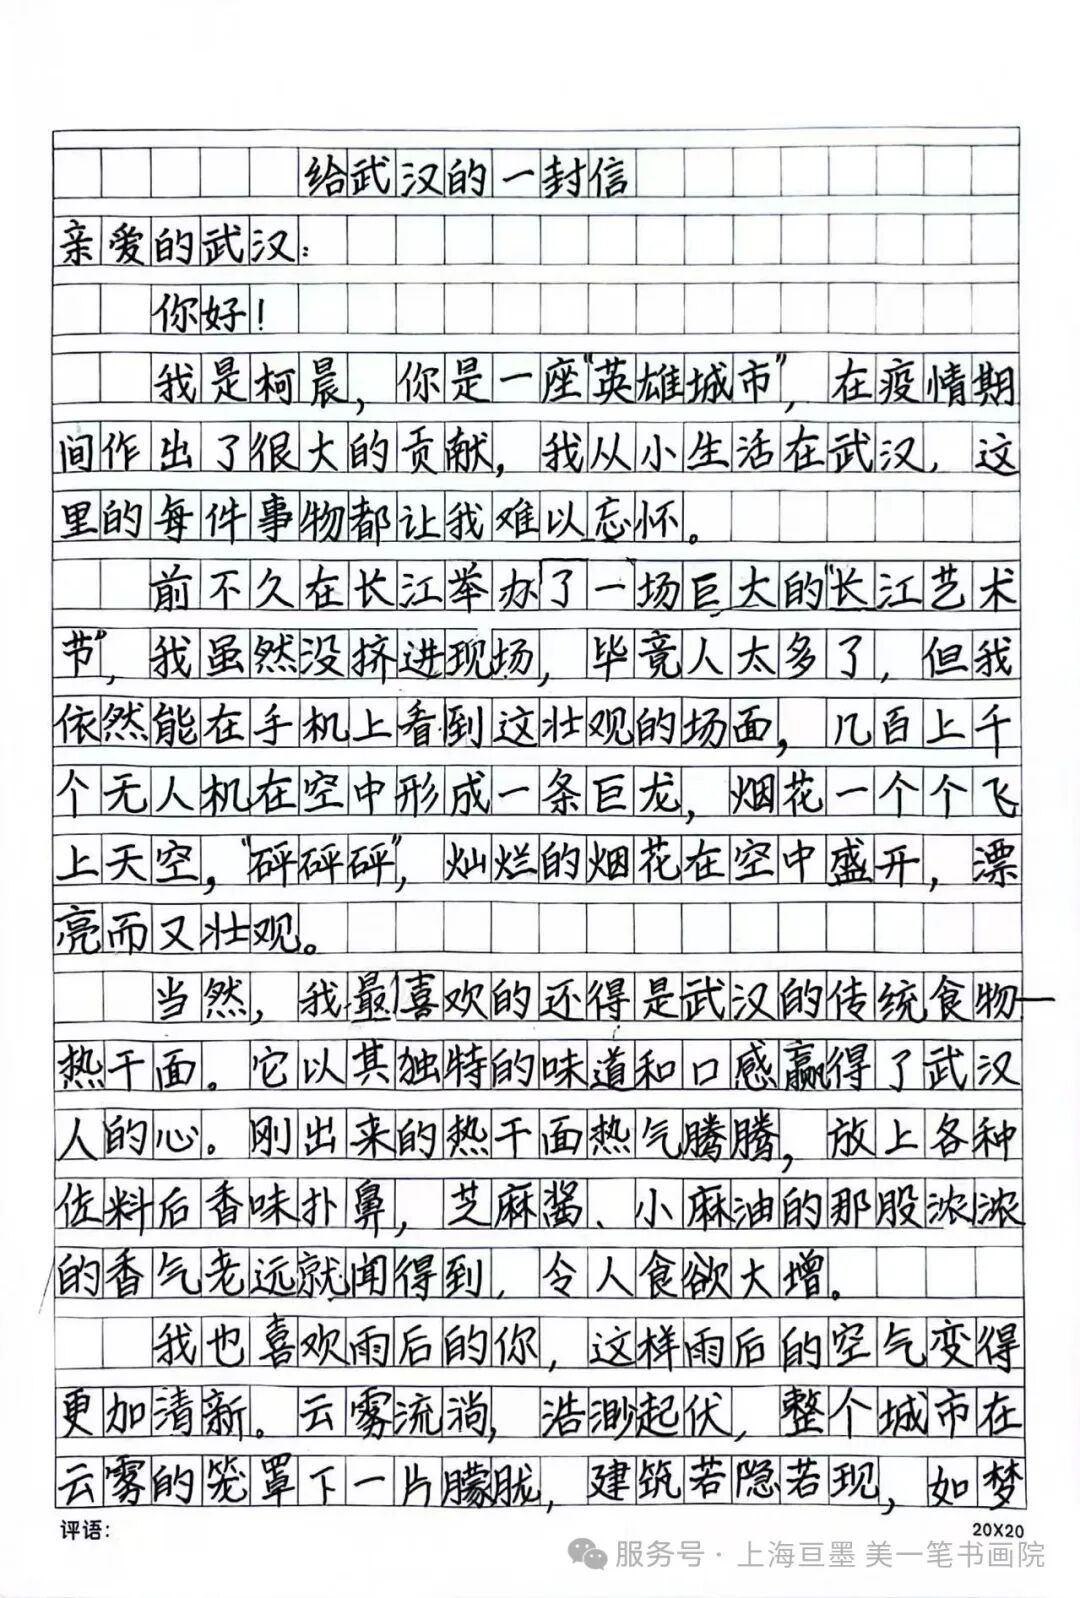 给武汉的一封信
亲爱的武汉：
你好！
我是柯晨，你是一座“英雄城市”，在疫情期
间作出了很大的贡献，我从小生活在武汉，这
里的每件事物都让我难以忘怀。
前不久在长江举办了一场巨大的“长江艺术
节”，我虽然没挤进现场，毕竟人太多了，但我
依然能在手机上看到这壮观的场面，几百上千
个无人机在空中形成一条巨龙，烟花一个个飞
上天空，“砰砰砰”，灿烂的烟花在空中盛开，漂
亮而又壮观。
当然，我最喜欢的还得是武汉的传统食物—
热干面。它以其独特的味道和口感赢得了武汉
人的心。刚出来的热干面热气腾腾，放上各种
佐料后香味扑鼻，芝麻酱、小麻油的那股浓浓
的香气老远就闻得到，令人食欲大增。
我也喜欢雨后的你，这样雨后的空气变得
更加清新。云雾流淌，浩渺起伏，整个城市在
云雾的笼罩下一片朦胧，建筑若隐若现，如梦
评语：
20X20
服务号·上海亘墨 美一笔书画院